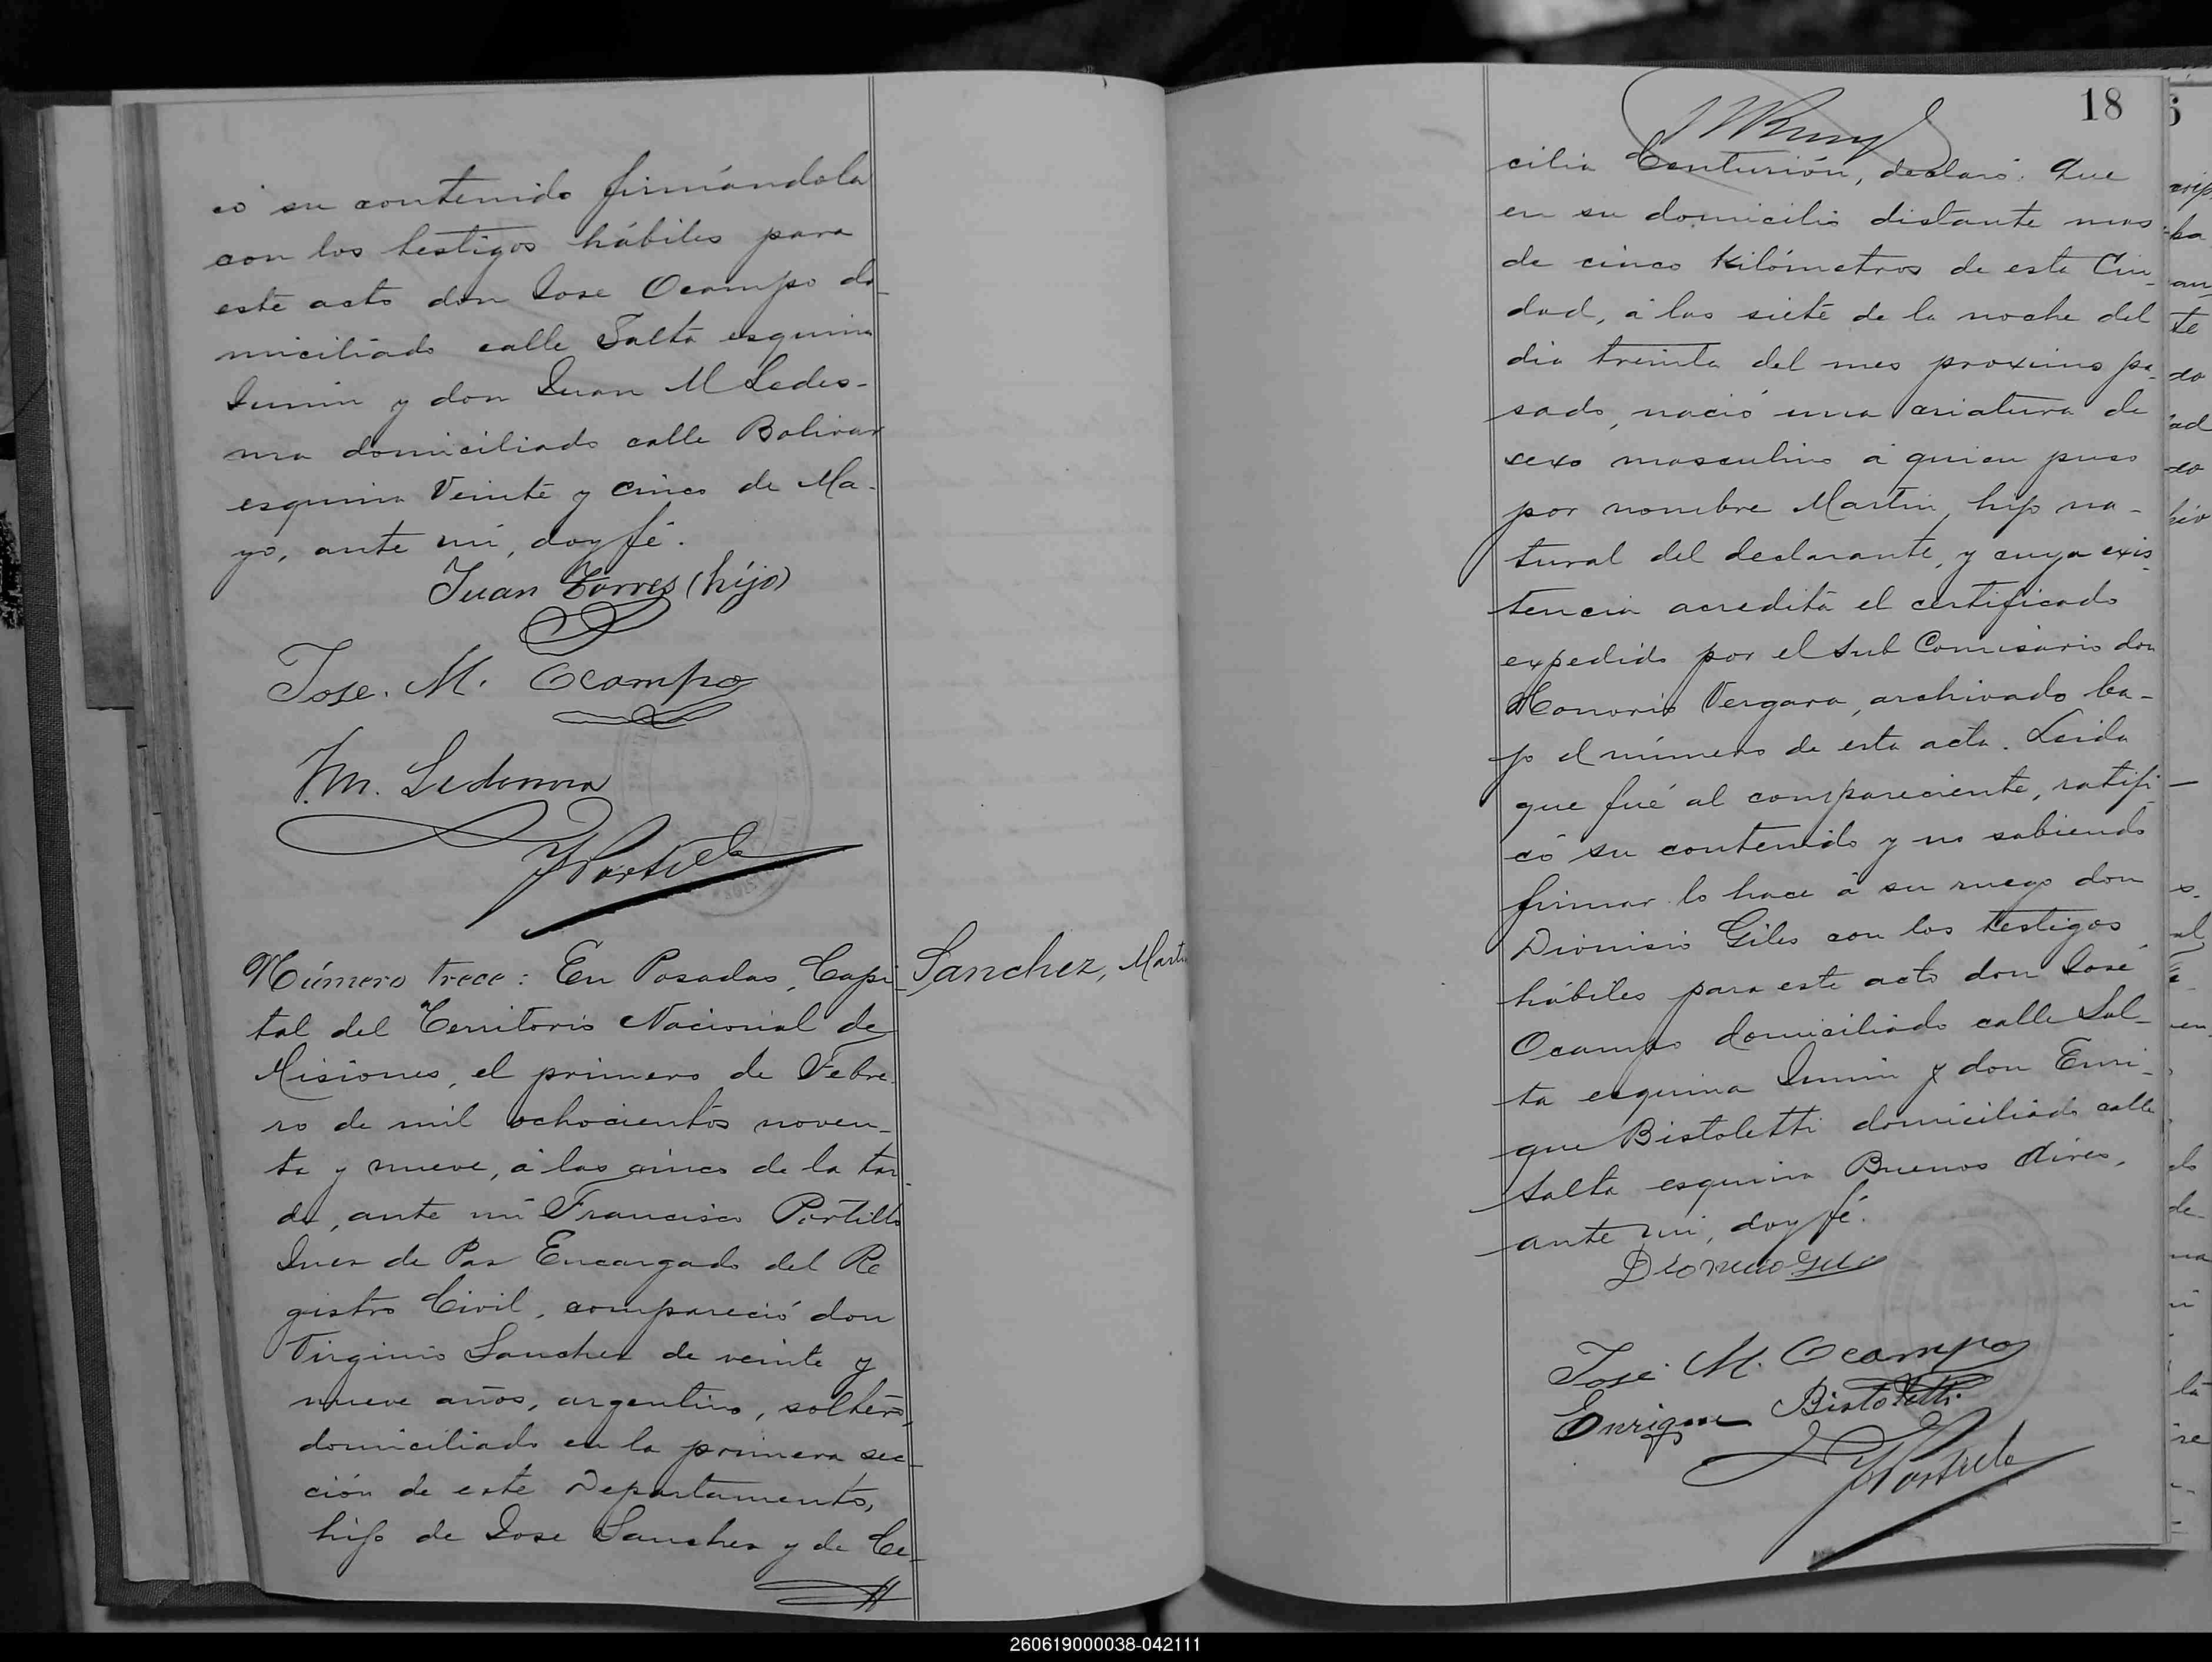 có su contenido firmándola
con los testigos hábiles para
este acto don Jose Ocampo do-
miciliado calle Salta esquina
Junin y don Juan M Ledes-
ma domiciliado calle Bolivar
esquina Veinte y cinco de Ma-
yo, ante mi, doy fé.
Juan Torres (hijo)
Jose. M. Ocampo
J.M. Ledesma
FPortillo
Número trece: En Posadas, Capi-
Sanchez, Marti
tal del Territorio Nacional de
Misiones, el primero de Febre-
ro de mil ochocientos noven-
ta y nueve, á las cinco de la tar-
de, ante mi Francisco Portillo
Juez de Paz Encargado del Re
gistro Civil, compareció don
Virginio Sanchez de veinte y
nueve años, argentino, soltero,
domiciliado en la primera sec-
ción de este Departamento,
hijo de Jose Sanchez y de Ce-
18
cilia Centurión, declaró: Que
en su domicilio distante mas
de cinco kilómetros de esta Ciu-
dad, á las siete de la noche del
dia treinta del mes proximo pa-
sado, nació una criatura de
sexo masculino á quien puso
por nombre Martin, hijo na-
tural del declarante, y cuya exis-
tencia acredita el certificado
expedido por el Sub Comisario don
Honorio Vergara, archivado ba-
jo el número de esta acta. Leida
que fué al compareciente, ratifi-
có su contenido y no sabiendo
firmar lo hace á su ruego don
Dionisio Giles con los testigos
hábiles para este acto don José
Ocampo domiciliado calle Sal-
ta esquina Junin y don Enri-
que Bistoletti domiciliado calle
Salta esquina Buenos Aires,
ante mi, doy fé.
Dionicio Giles
José M. Ocampo
Enrique Bistoletti
FPortillo
260619000038-042111